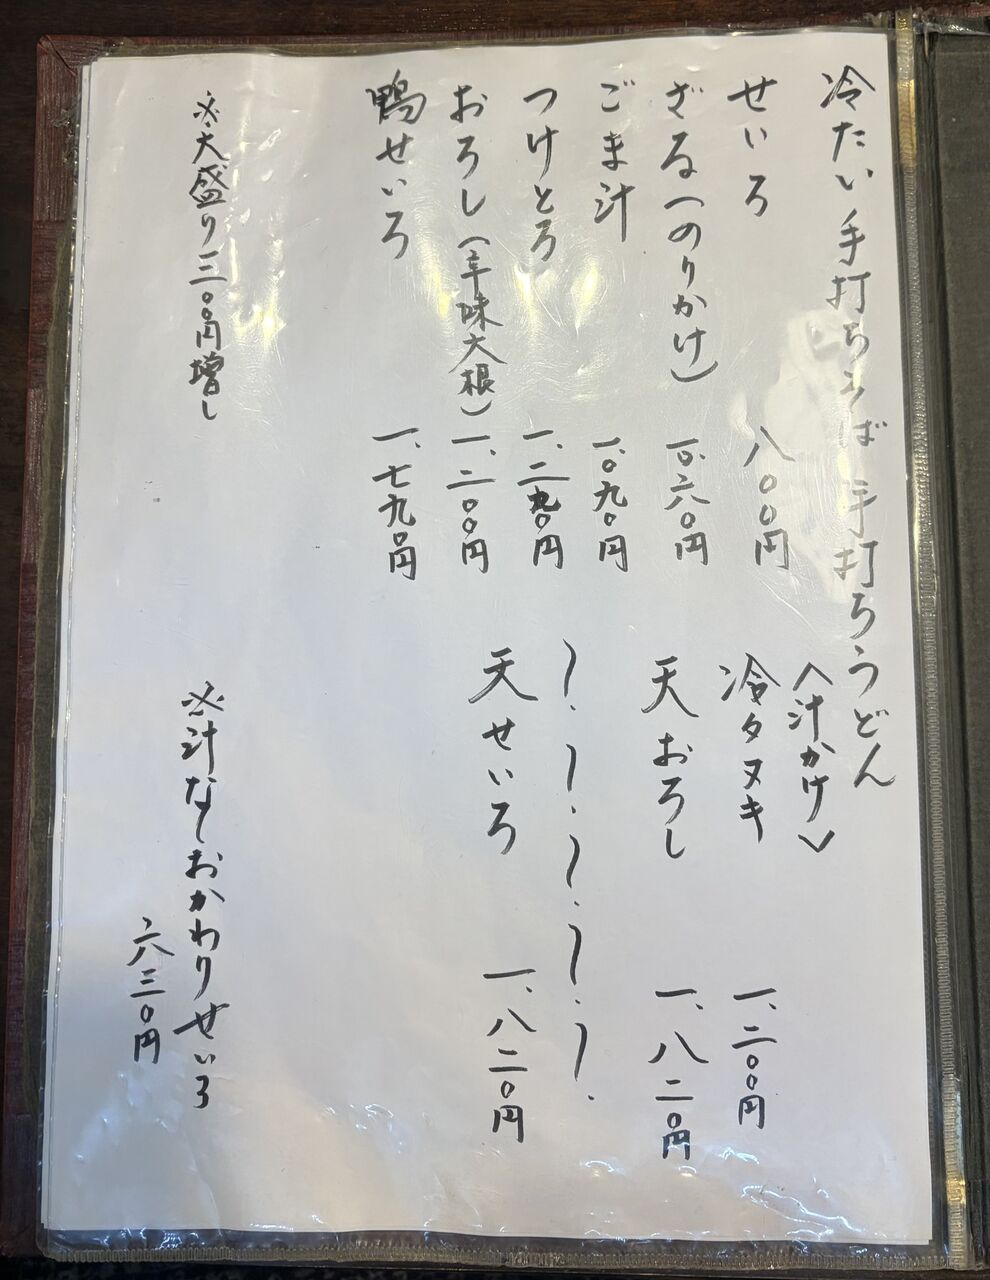 冷たい手打ちそば 手打ちうどん
せいろ 八〇〇円
ざる(のりかけ) 一、〇六〇円
ごま汁 一、〇九〇円
つけとろ 一、二九〇円
おろし(辛味大根) 一、二〇〇円
鴨せいろ 一、七九〇円
※大盛り三〇〇円増し
<汁かけ>
冷タヌキ 一、二〇〇円
天おろし 一、八二〇円
天せいろ 一、八二〇円
※汁なしおかわりせいろ
六三〇円